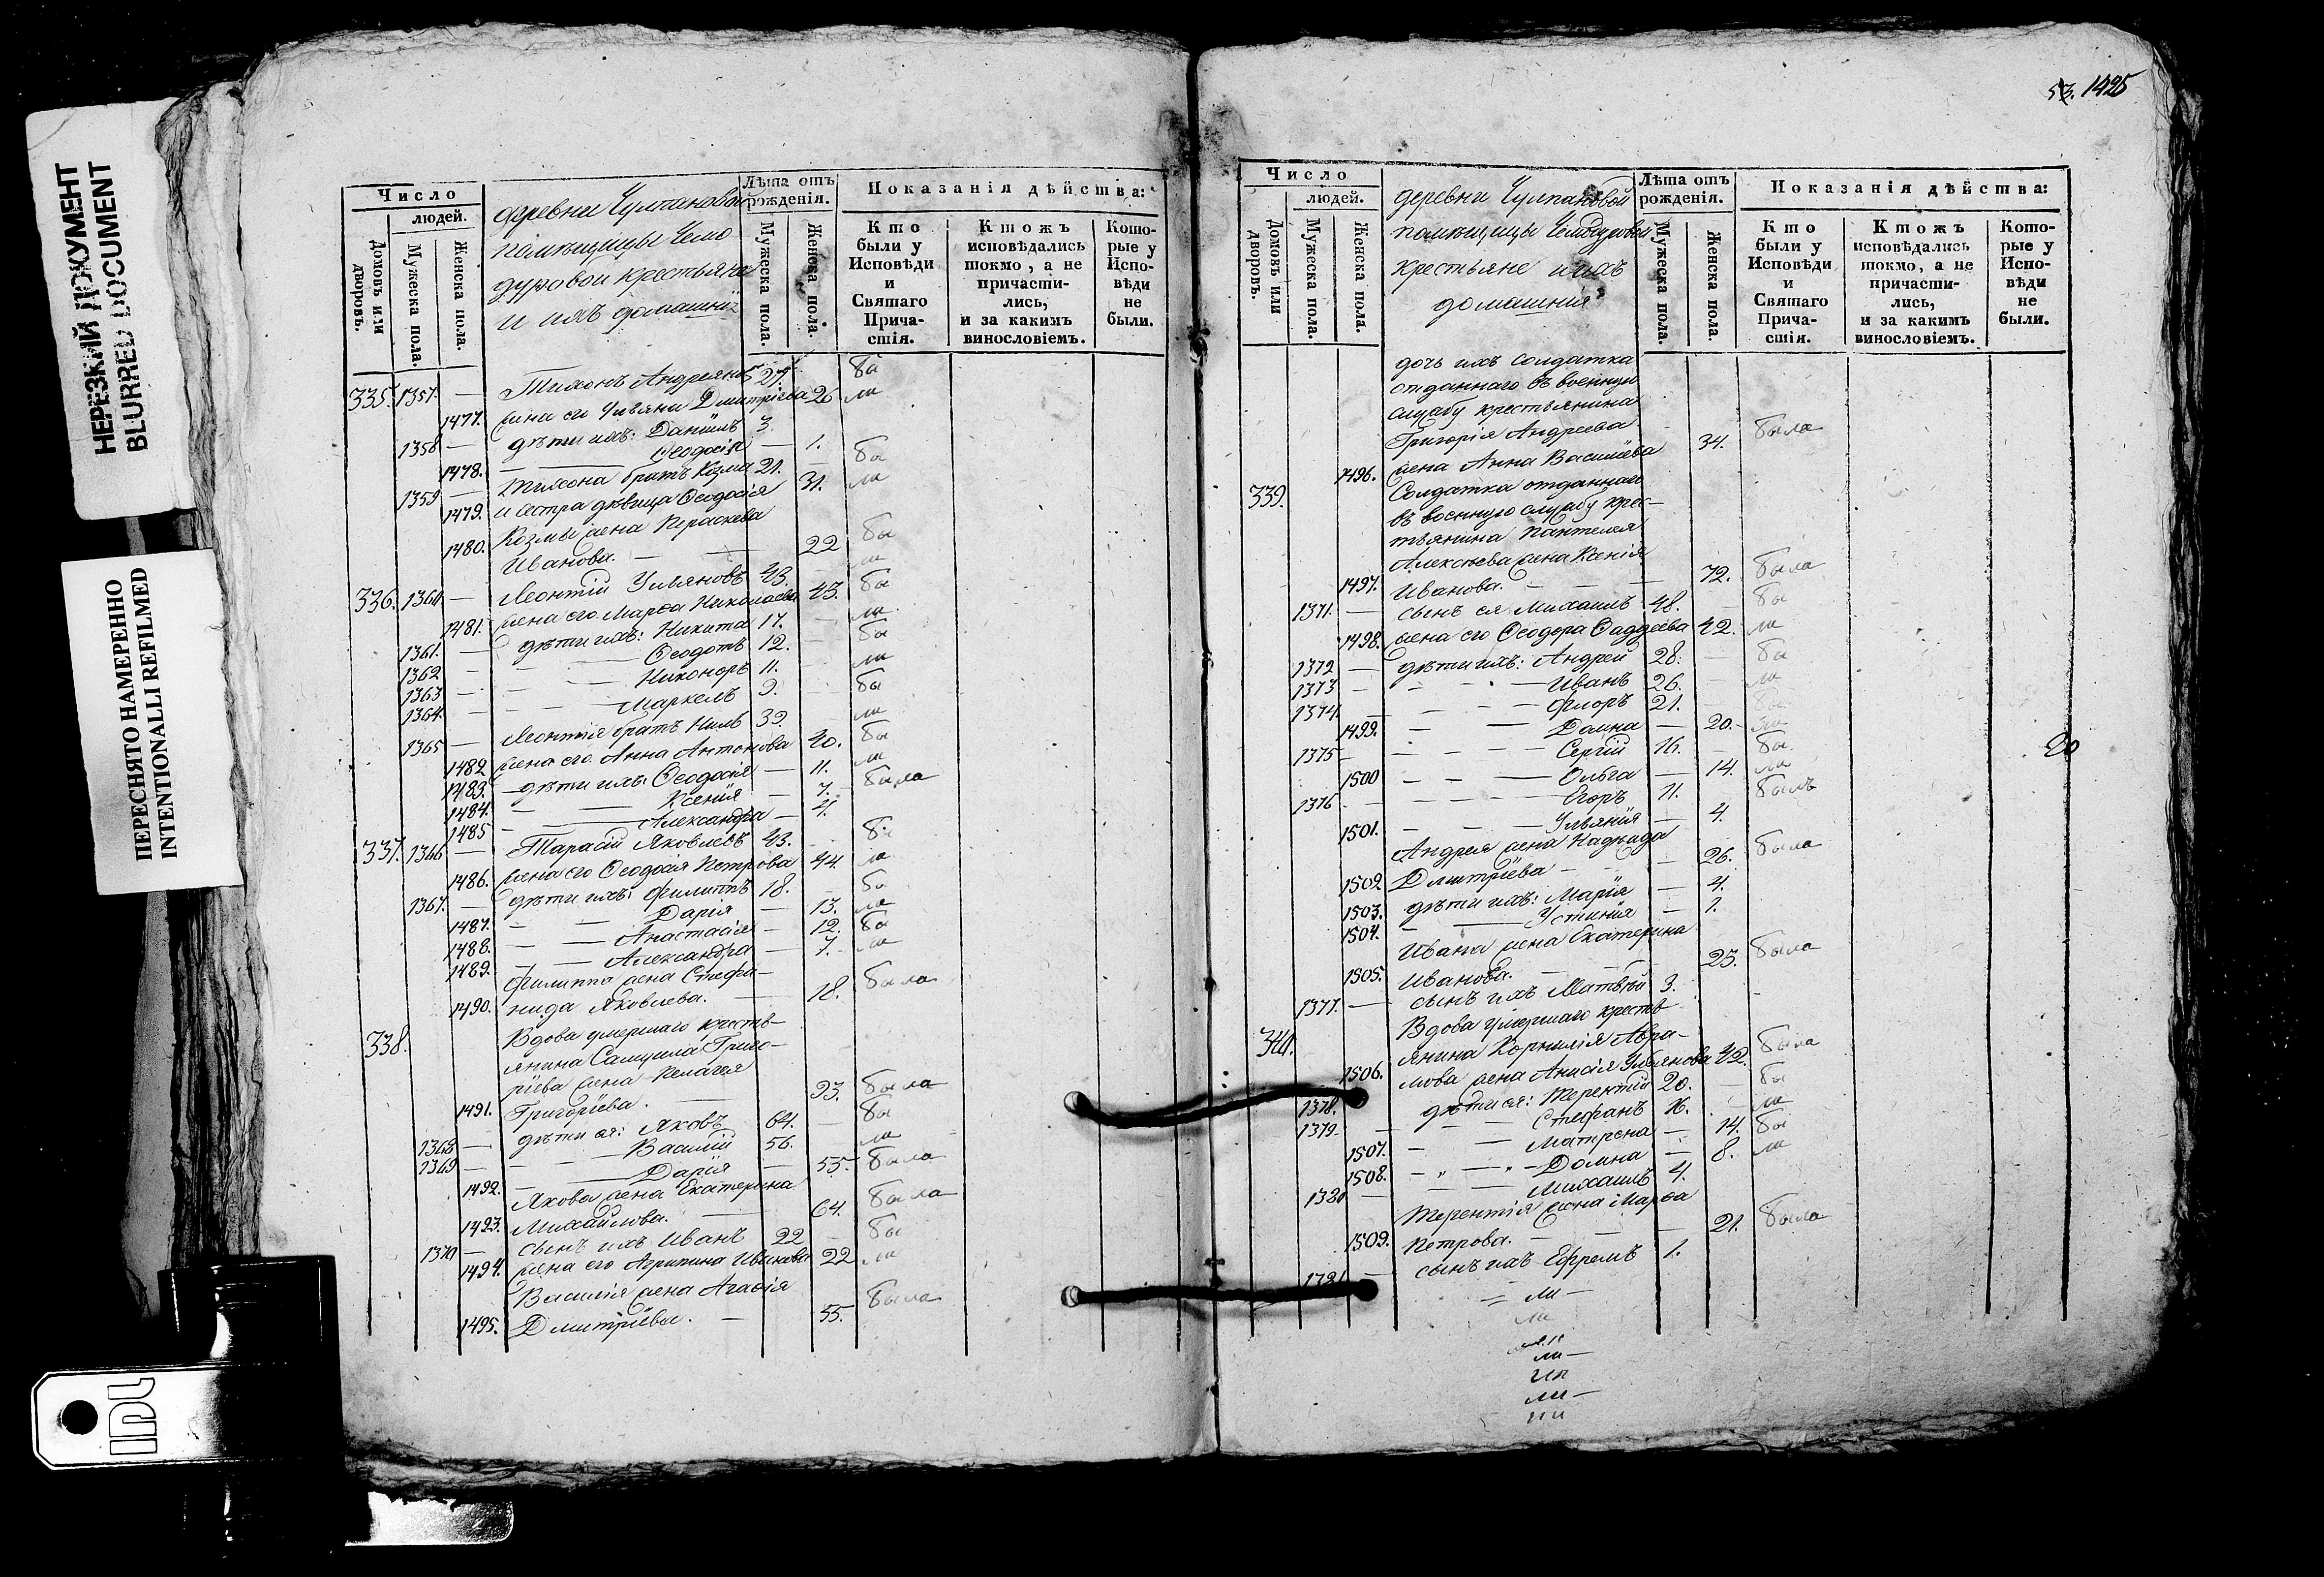 НЕРЕЗКИЙ ДОКУМЕНТ
BLURRED DOCUMENT
ПЕРЕСНЯТО НАМЕРЕННО
INTENTIONALLI REFILMED
Число
людей.
Домовъ или дворовъ.
Мужеска пола.
Женска пола.
деревни Чулпановой
помѣщицы Чемо
дуровой крестьяне
и ихъ домашнiя
Лѣта отъ рожденія.
Мужеска пола.
Женска пола.
Показанія дѣйства:
Кто были у Исповѣди и Святаго Причастія.
Ктожъ исповѣдались токмо, а не причастились, и за какимъ винословіемъ.
Которые у Исповѣди не были.
335. 1357. — Тихонъ Андреяновъ 27. бы
1477. жена его Ульяна Дмитріева 26 ли
1358 — дѣти ихъ: Даніилъ 3.
1478. — Ѳеодосія — 1.
1359 — Тихона братъ Козма 21. — бы
1479. и сестра дѣвица Ѳеодосія 31. ли
Козмы жена Параскева
1480. Иванова. — 22 бы
336. 1360 — Леонтій Ульяновъ 43. — ли
1481. жена его Марѳа Николаева 43. бы
1361. — дѣти ихъ: Никита 17. — ли
1362 — Ѳеодотъ 12. — бы
1363 — Никоноръ 11. — ли
1364. — Маркелъ 9. — бы
1365 — Леонтія братъ Нилъ 39. — ли
1482 жена его Анна Антонова 40. бы
1483. — дѣти ихъ: Ѳеодосія — 11. ли
1484. — Ксенія — 7. была
1485 — Александра — 4.
337. 1366 — Тарасій Яковлевъ 43. — бы
1486. жена его Ѳеодосія Петрова 44. ли
1367. — дѣти ихъ: Филиппъ 18. — бы
1487. — Дарія — 13. ли
1488. — Анастасія — 12. бы
1489. — Александра — 7. ли
Филиппа жена Стефа-
1490. нида Яковлева. — 18. была
338. Вдова умершаго кресть-
янина Самуила Григо-
ріева жена Пелагея
1491. Григоріева. — 93. была
1368 — дѣти ея: Яковъ 64. — бы
1369 — Василій 56. — ли
1492. — Дарія — 55. была
Якова жена Екатерина
1493. Михайлова. — 64. была
1370 — сынъ ихъ Иванъ 22 — бы
1494. жена его Агрипина Иванова 22 ли
Василія жена Агафія
1495. Дмитріева. — 55. была
53. 1425
Число
людей.
Домовъ или дворовъ.
Мужеска пола.
Женска пола.
деревни Чулпановой
помѣщицы Чемодуровой
крестьяне и ихъ
домашнія
Лѣта отъ рожденія.
Мужеска пола.
Женска пола.
Показанія дѣйства:
Кто были у Исповѣди и Святаго Причастія.
Ктожъ исповѣдались токмо, а не причастились, и за какимъ винословіемъ.
Которые у Исповѣди не были.
дочь ихъ солдатка
отданнаго въ военную
службу крестьянина
Григорія Андреева
1496. жена Анна Васильева 34. была
339. Солдатка отданнаго
въ военную службу крес-
тьянина Пантелея
Алексѣева жена Ксенія
1497. Иванова. — 72. была
1371. — сынъ ея Михаилъ 48. — бы
1498. жена его Ѳеодора Ѳаддѣева 42. ли
1372 — дѣти ихъ: Андрей 28. — бы
1373 — Иванъ 26. — ли
1374. — Флоръ 21. бы
1499. — Домна — 20. ли
1375 — Сергій 16. — бы
1500 — Ольга — 14. ли
1376 — Егоръ 11. былъ
1501. — Ульянія — 4.
Андрея жена Надежда
1502 Дмитріева — 26. была
1503. дѣти ихъ: Марія — 4.
1504. — Устинія — 1.
Ивана жена Екатерина
1505. Иванова. — 25. была
1377. — сынъ ихъ Матвѣй 3.
340. Вдова умершаго кресть
янина Корнилія Авра-
1506. мова жена Анисія Ульянова 42. была
1378. дѣти ея: Терентій 20. — бы
1379 — Стефанъ 16. — ли
1507. — Матрена — 14. бы
1508. — Домна — 8. ли
1380 — Михаилъ 4.
Терентія жена Марѳа
1509. Петрова. — 21. была
1381 — сынъ ихъ Ефремъ 1.
20
IDL